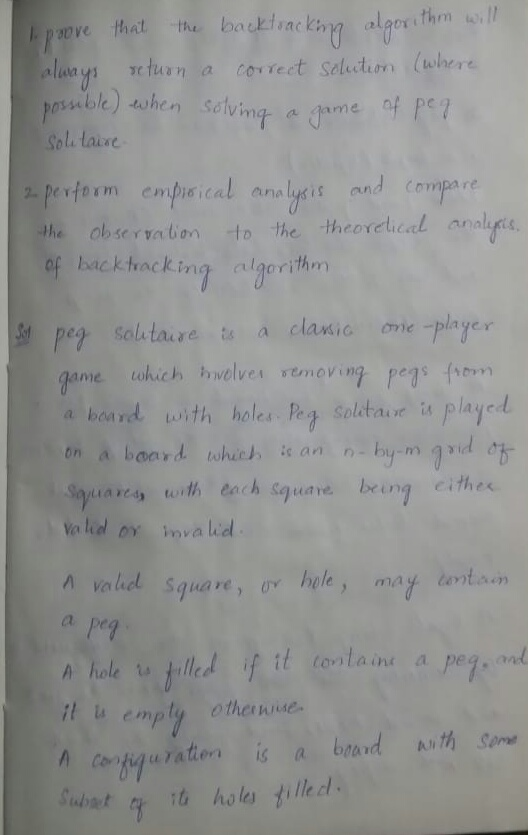 1. prove that the backtracking algorithm will
always return a correct solution (where
possible) when solving a game of peg
Solitaire.
2. perform empirical analysis and compare
the observation to the theoretical analysis.
of backtracking algorithm
Sol peg solitaire is a classic one-player
game which involves removing pegs from
a board with holes. Peg Solitaire is played
on a board which is an n-by-m grid of
squares, with each square being either
valid or invalid.
A valid square, or hole, may contain
a peg.
A hole is filled if it contains a peg, and
it is empty otherwise.
A configuration is a board with some
Subset of its holes filled.